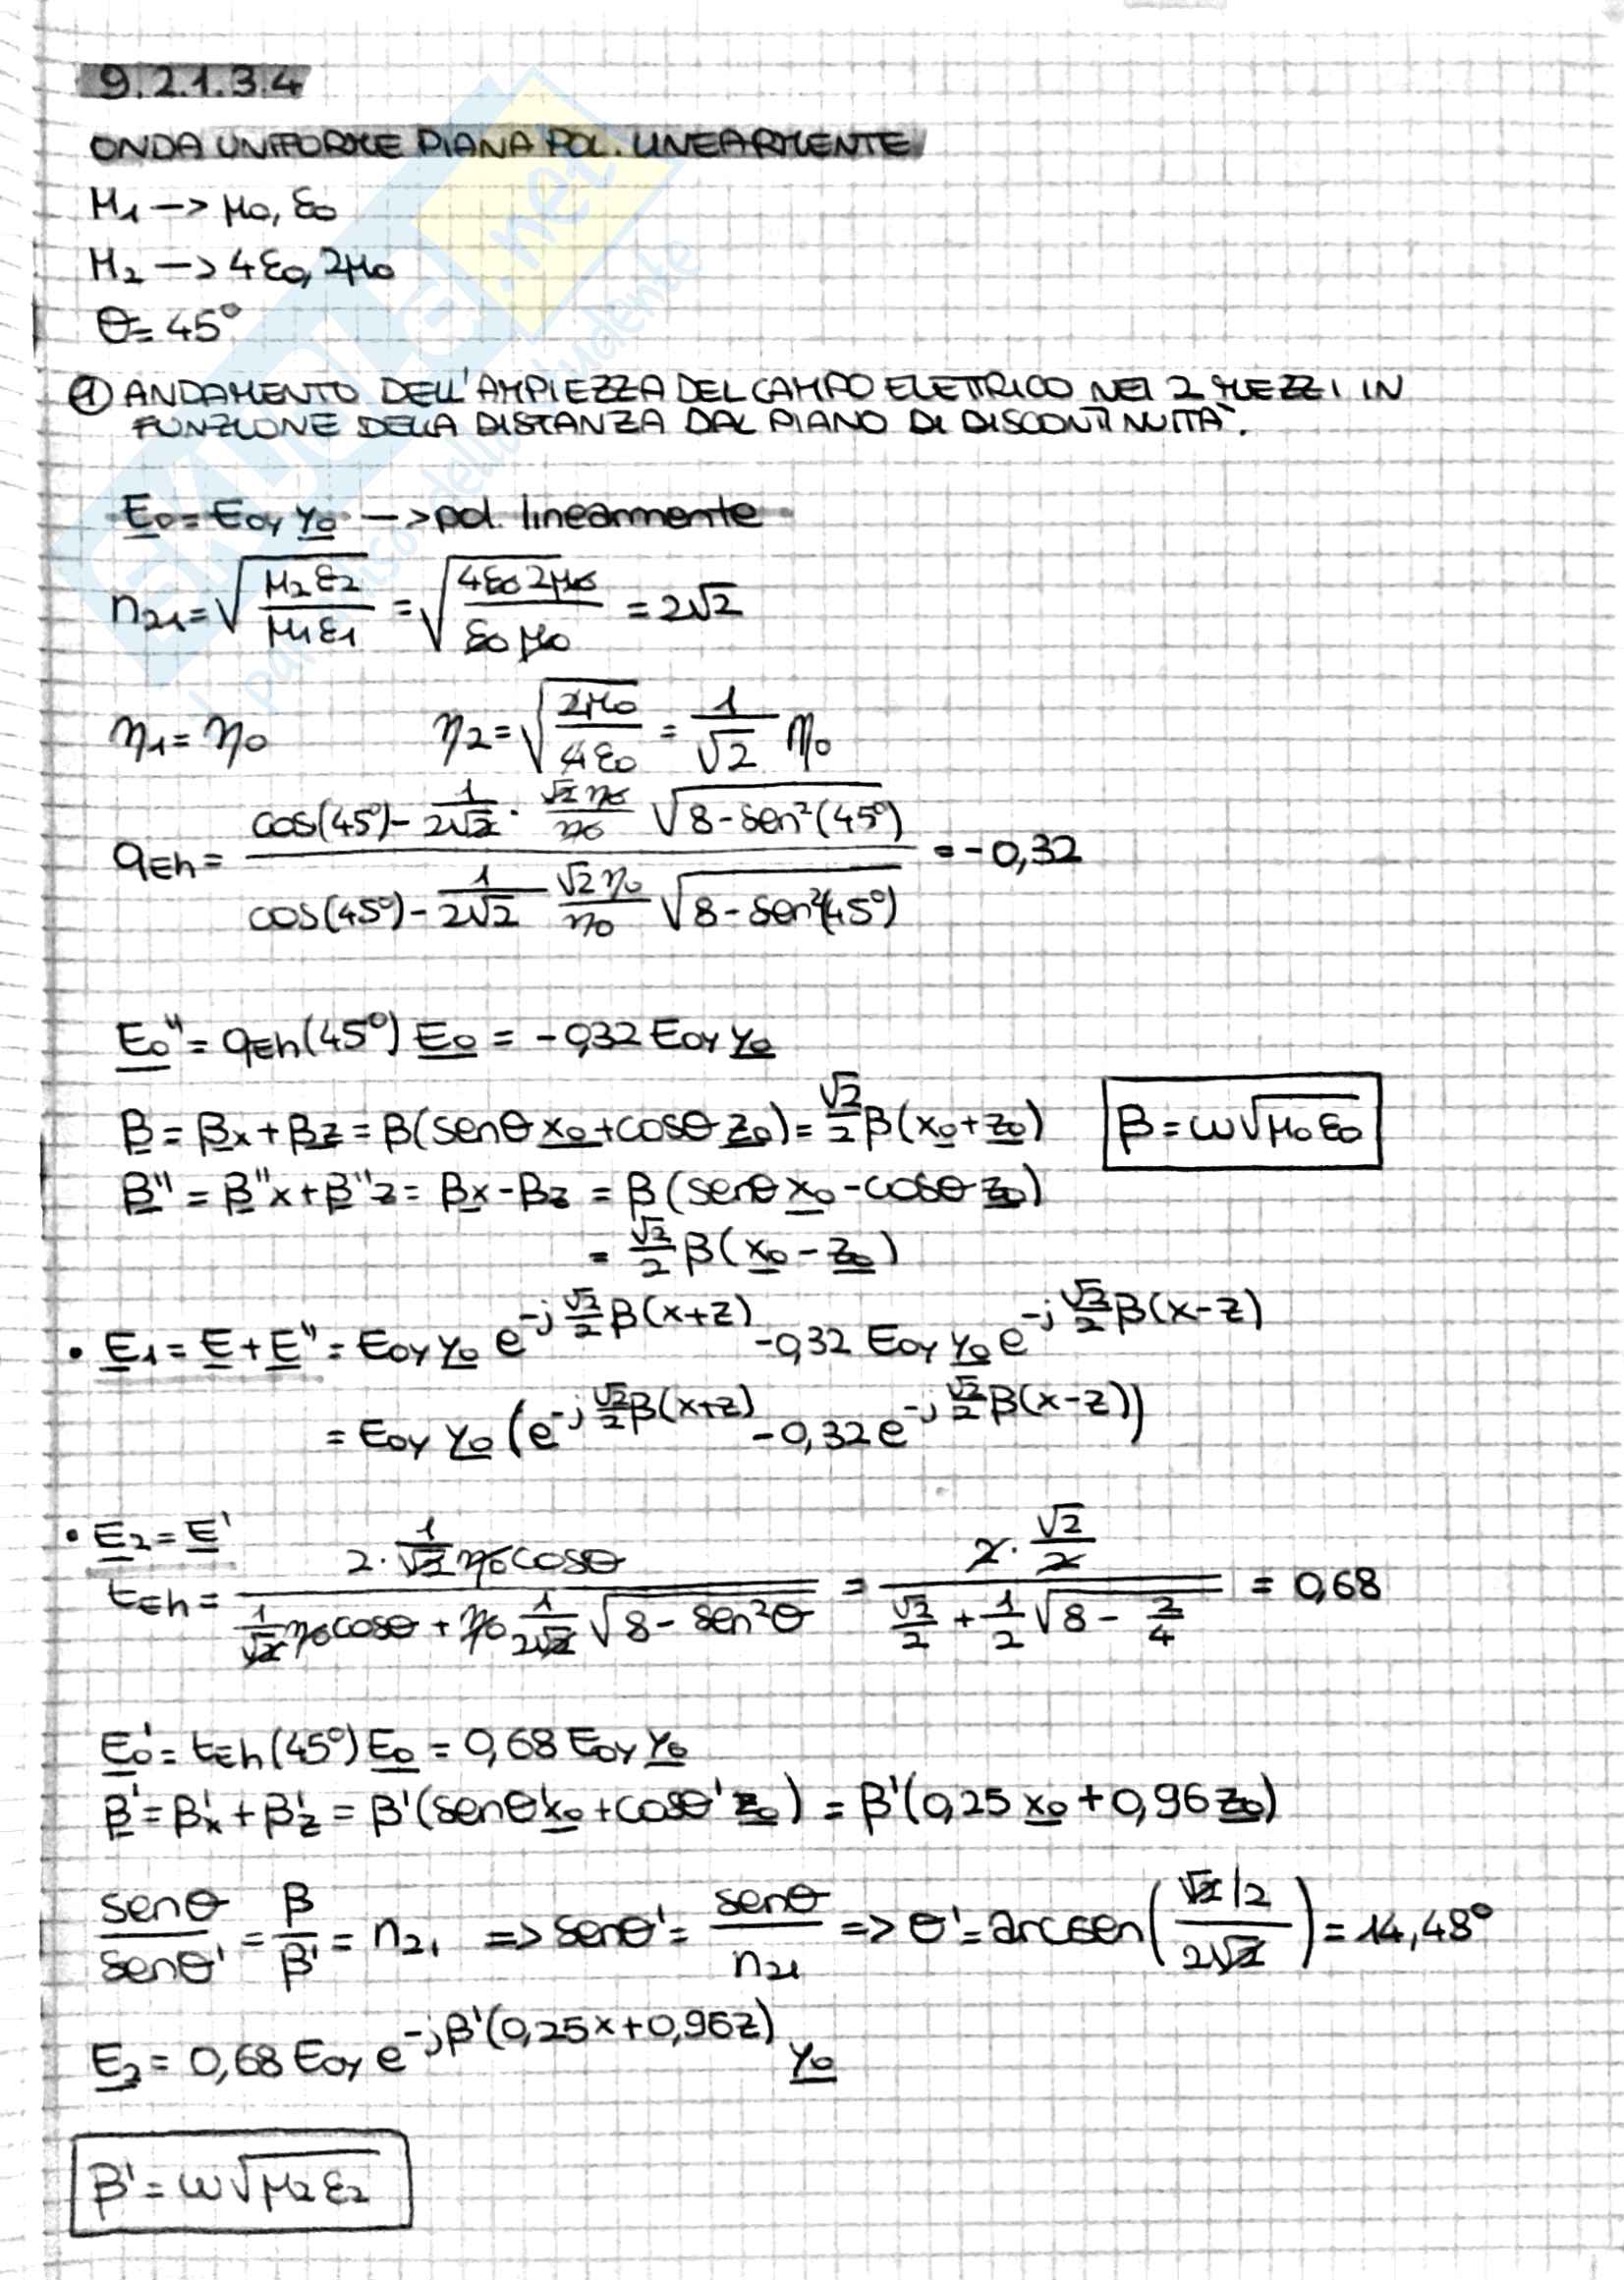 9.2.1.3.4
ONDA UNIFORME PIANA POL. LINEARMENTE
M₁ -> μ₀, ε₀
M₂ -> 4ε₀, 2μ₀
θ = 45°
① ANDAMENTO DELL'AMPIEZZA DEL CAMPO ELETTRICO NEI 2 MEZZI IN
FUNZIONE DELLA DISTANZA DAL PIANO DI DISCONTINUITÀ.
E₀ = E₀y y₀ -> pol. linearmente
n₂₁ = √(μ₂ε₂ / μ₁ε₁) = √(4ε₀ 2μ₀ / ε₀ μ₀) = 2√2
η₁ = η₀ η₂ = √(2μ₀ / 4ε₀) = 1/√2 η₀
qEh = (cos(45°) - 1/(2√2) · √2 η₀/η₀ √(8 - sen²(45°))) / (cos(45°) - 1/(2√2) √2 η₀/η₀ √(8 - sen²(45°))) = -0,32
E₀" = qEh(45°) E₀ = -0,32 E₀y y₀
β = βx + βz = β(senθ x₀ + cosθ z₀) = √2/2 β(x₀ + z₀) β = ω√(μ₀ ε₀)
β" = β"x + β"z = βx - βz = β(senθ x₀ - cosθ z₀)
= √2/2 β(x₀ - z₀)
• E₁ = E + E" = E₀y y₀ e^(-j √2/2 β(x+z)) - 0,32 E₀y y₀ e^(-j √2/2 β(x-z))
= E₀y y₀ (e^(-j √2/2 β(x+z)) - 0,32 e^(-j √2/2 β(x-z)))
• E₂ = E'
tEh = (2 · 1/√2 η₀ cosθ) / (1/√2 η₀ cosθ + η₀ 1/(2√2) √(8 - sen²θ)) = (2 · √2/2) / (√2/2 + 1/2 √(8 - 2/4)) = 0,68
E₀' = tEh(45°) E₀ = 0,68 E₀y y₀
β' = β'x + β'z = β'(senθ' x₀ + cosθ' z₀) = β'(0,25 x₀ + 0,96 z₀)
senθ/senθ' = β/β' = n₂₁ => senθ' = senθ/n₂₁ => θ' = arcsen((√2/2) / (2√2)) = 14,48°
E₂ = 0,68 E₀y e^(-jβ'(0,25x + 0,96z)) y₀
β' = ω√(μ₂ ε₂)